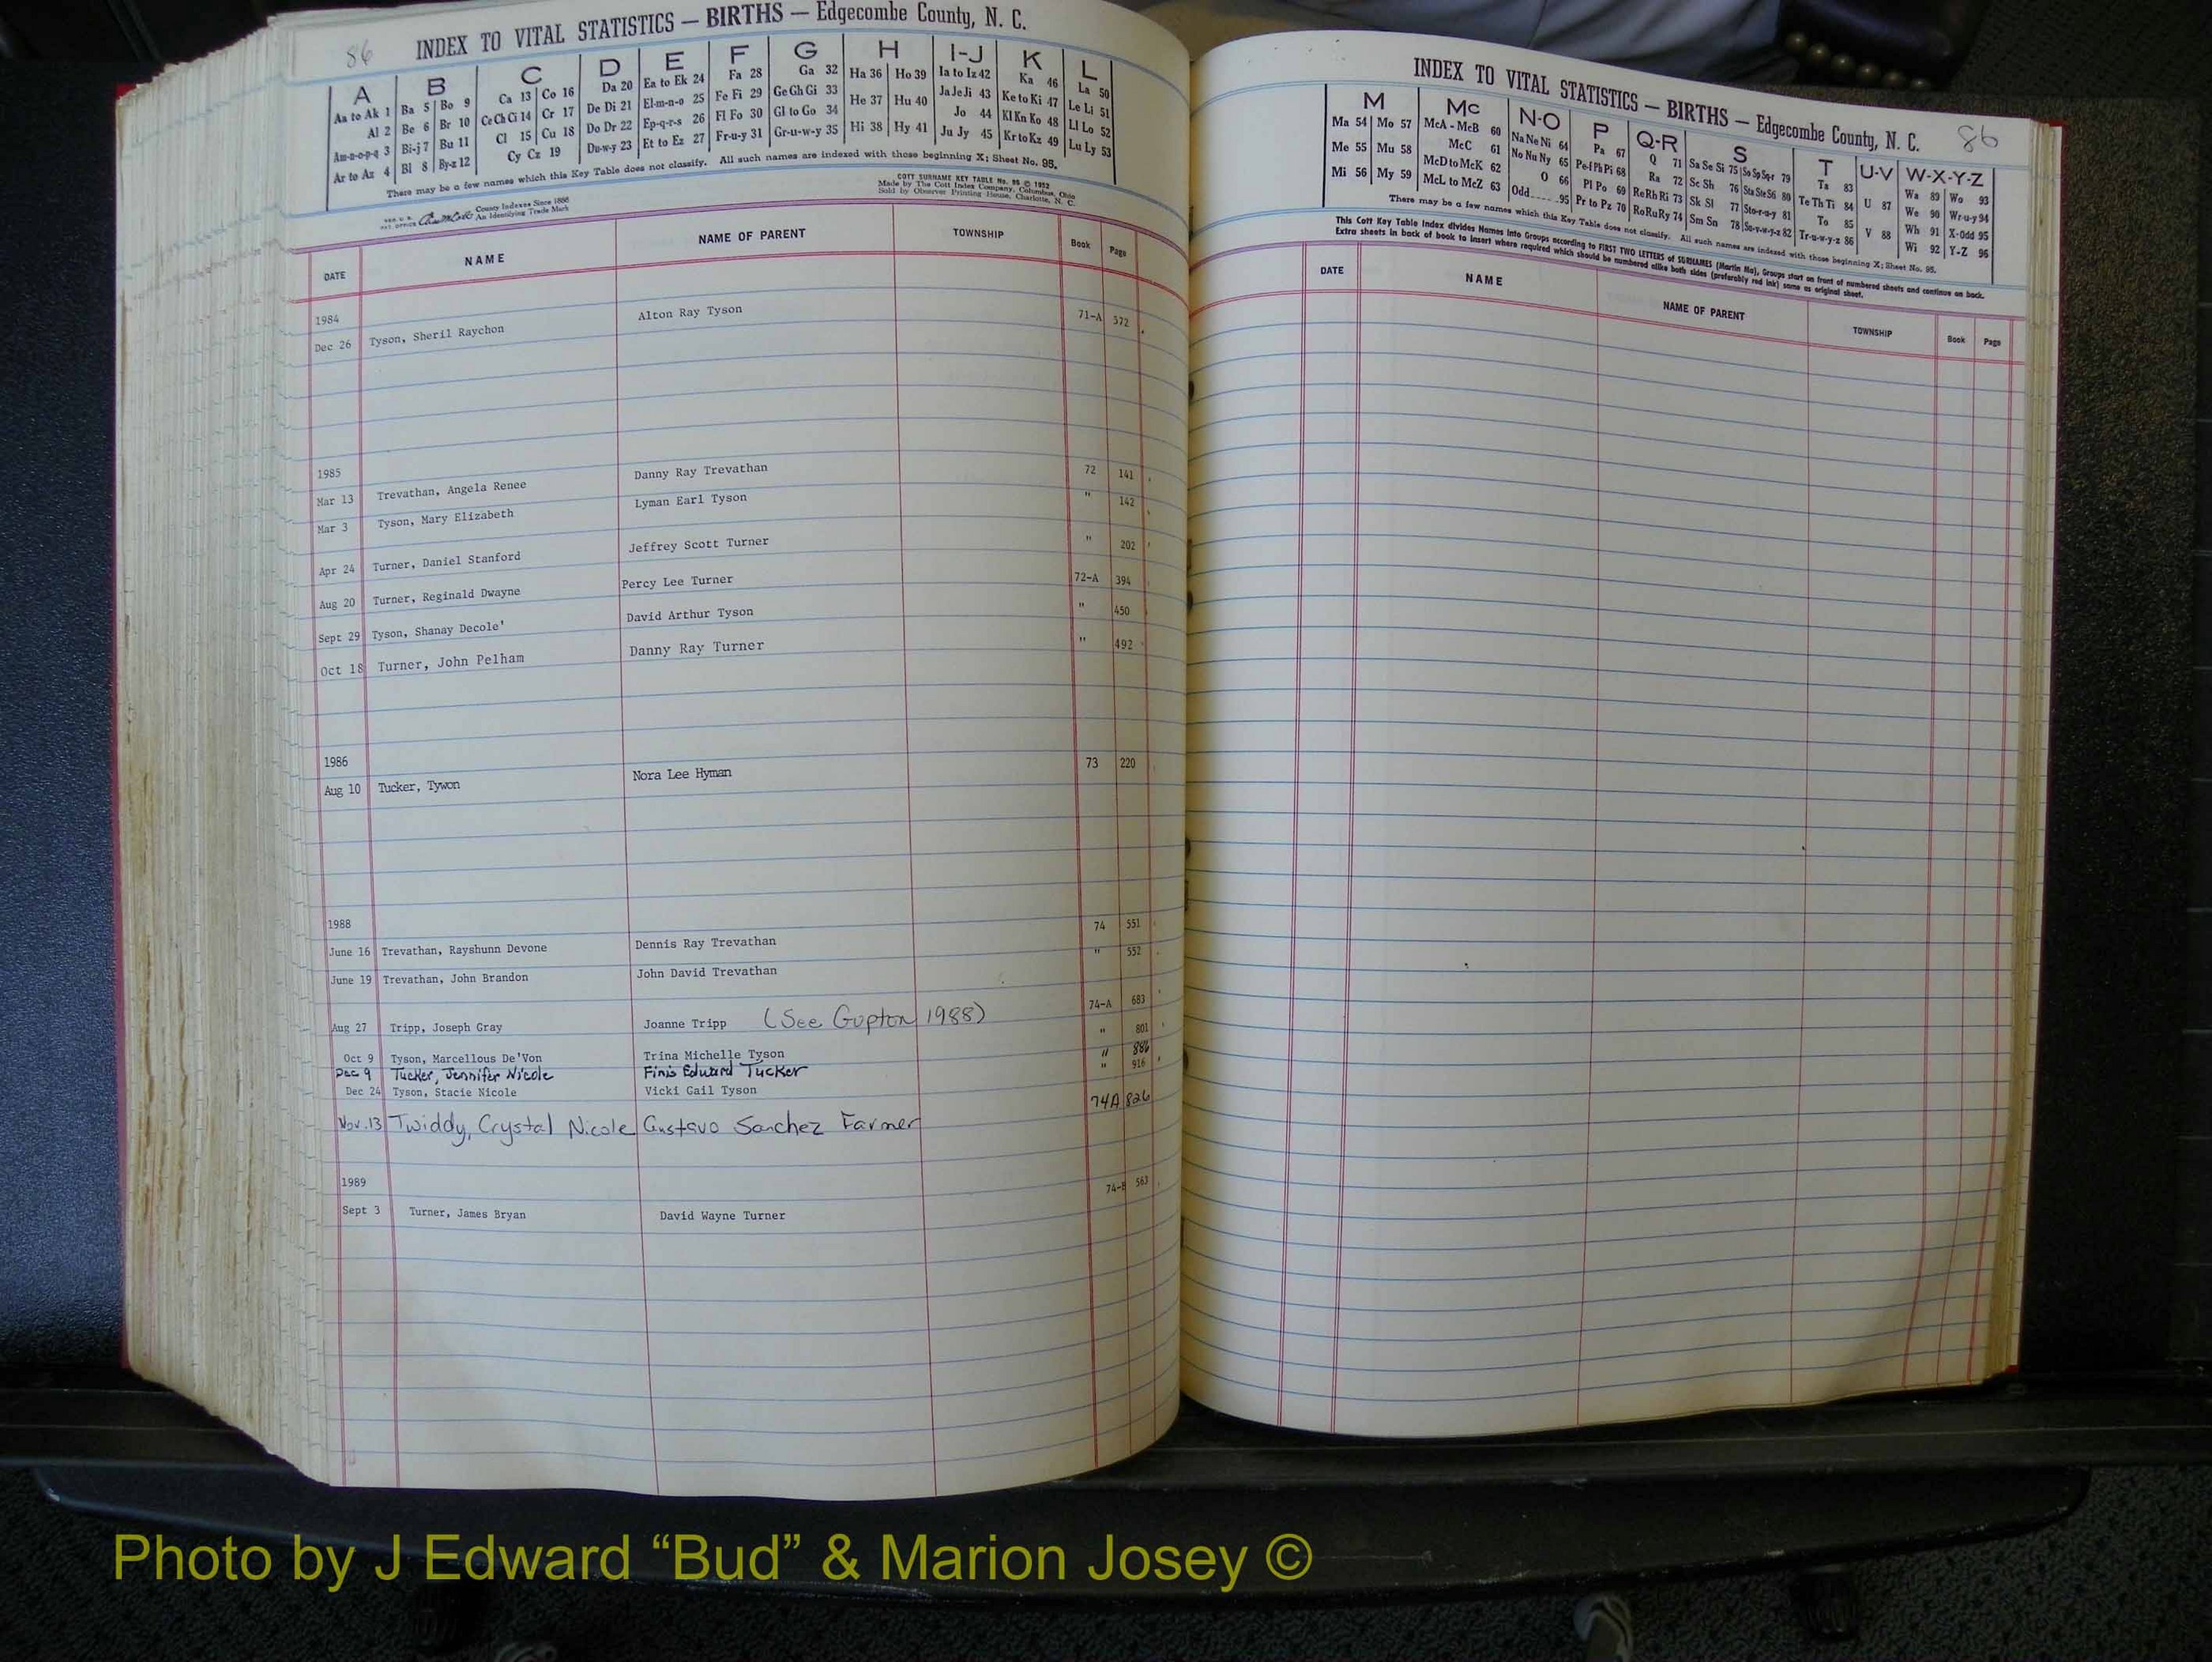 86 INDEX TO VITAL STATISTICS — BIRTHS — Edgecombe County, N. C.
A B C D E F G H I-J K L
Aa to Ak 1 Ba 5 Bo 9 Ca 13 Co 16 Da 20 Ea to Ek 24 Fa 28 Ga 32 Ha 36 Ho 39 Ia to Iz 42 Ka 46 La 50
Al 2 Be 6 Br 10 Ce Ch Ci 14 Cr 17 De Di 21 El-m-n-o 25 Fe Fi 29 Ge Gh Gi 33 He 37 Hu 40 Ja Je Ji 43 Ke to Ki 47 Le Li 51
Am-n-o-p-q 3 Bi-j 7 Bu 11 Cl 15 Cu 18 Do Dr 22 Ep-q-r-s 26 Fl Fo 30 Gl to Go 34 Hi 38 Hy 41 Jo 44 Kl Kn Ko 48 Ll Lo 52
Ar to Az 4 Bl 8 By-z 12 Cy Cz 19 Du-w-y 23 Et to Ez 27 Fr-u-y 31 Gr-u-w-y 35 Ju Jy 45 Kr to Kz 49 Lu Ly 53
There may be a few names which this Key Table does not classify. All such names are indexed with those beginning X; Sheet No. 95.
County Indexes Since 1888
An Identifying Trade Mark
COTT SURNAME KEY TABLE No. 96 © 1952
Made by The Cott Index Company, Columbus, Ohio
Sold by Observer Printing House, Charlotte, N. C.
DATE NAME NAME OF PARENT TOWNSHIP Book Page
1984
Dec 26 Tyson, Sheril Raychon Alton Ray Tyson 71-A 572
1985
Mar 13 Trevathan, Angela Renee Danny Ray Trevathan 72 141
Mar 3 Tyson, Mary Elizabeth Lyman Earl Tyson " 142
Apr 24 Turner, Daniel Stanford Jeffrey Scott Turner " 202
Aug 20 Turner, Reginald Dwayne Percy Lee Turner 72-A 394
Sept 29 Tyson, Shanay Decole' David Arthur Tyson " 450
Oct 18 Turner, John Pelham Danny Ray Turner " 492
1986
Aug 10 Tucker, Tywon Nora Lee Hyman 73 220
1988
June 16 Trevathan, Rayshunn Devone Dennis Ray Trevathan 74 551
June 19 Trevathan, John Brandon John David Trevathan " 552
Aug 27 Tripp, Joseph Gray Joanne Tripp (See Gupton 1988) 74-A 683
Oct 9 Tyson, Marcellous De'Von Trina Michelle Tyson " 801
Dec 9 Tucker, Jennifer Nicole Finis Edward Tucker " 886
Dec 24 Tyson, Stacie Nicole Vicki Gail Tyson " 916
Nov. 13 Twiddy, Crystal Nicole Gustavo Sanchez Farmer 74A 826
1989
Sept 3 Turner, James Bryan David Wayne Turner 74-B 563
INDEX TO VITAL STATISTICS — BIRTHS — Edgecombe County, N. C. 86
M Mc N-O P Q-R S T U-V W-X-Y-Z
Ma 54 Mo 57 McA - McB 60 Na Ne Ni 64 Pa 67 Q 71 Sa Se Si 75 So Sp Sq-r 79 Ta 83 U 87 Wa 89 Wo 93
Me 55 Mu 58 McC 61 No Nu Ny 65 Pe-f Ph Pi 68 Ra 72 Sc Sh 76 Sta Ste S6 80 Te Th Ti 84 V 88 We 90 Wr-u-y 94
Mi 56 My 59 McD to McK 62 O 66 Pl Po 69 Re Rh Ri 73 Sk Sl 77 Sto-r-u-y 81 To 85 Wh 91 X-Odd 95
McL to McZ 63 Odd 95 Pr to Pz 70 Ro Ru Ry 74 Sm Sn 78 Su-v-w-y-z 82 Tr-u-w-y-z 86 Wi 92 Y-Z 96
There may be a few names which this Key Table does not classify. All such names are indexed with those beginning X; Sheet No. 95.
This Cott Key Table Index divides Names into Groups according to FIRST TWO LETTERS of SURNAMES (Martin Ma), Groups start on front of numbered sheets and continue on back.
Extra sheets in back of book to insert where required which should be numbered alike both sides (preferably red ink) same as original sheet.
DATE NAME NAME OF PARENT TOWNSHIP Book Page
Photo by J Edward “Bud” & Marion Josey ©